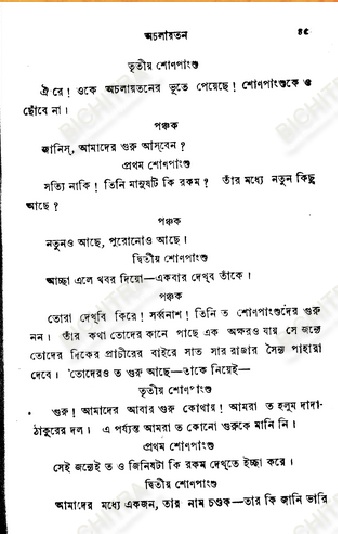 অচলায়তন ৪৫
তৃতীয় শোণপাংশু
ঐ রে! ওকে অচলায়তনের ভূতে পেয়েছে! শোণপাংশুকে ও
ছোঁবে না।
পঞ্চক
জানিস্, আমাদের গুরু আস্‌বেন?
প্রথম শোণপাংশু
সত্যি নাকি! তিনি মানুষটি কি রকম? তাঁর মধ্যে নতুন কিছু
আছে?
পঞ্চক
নতুনও আছে, পুরোনোও আছে।
দ্বিতীয় শোণপাংশু
আচ্ছা এলে খবর দিয়ো—একবার দেখ্‌ব তাঁকে।
পঞ্চক
তোরা দেখ্‌বি কিরে! সর্ব্বনাশ! তিনি ত শোণপাংশুদের গুরু
নন। তাঁর কথা তোদের কানে পাছে এক অক্ষরও যায় সে জন্যে
তোদের দিকের প্রাচীরের বাইরে সাত সার রাজার সৈন্য পাহারা
দেবে। তোদেরও ত গুরু আছে—তাকে নিয়েই—
তৃতীয় শোণপাংশু
গুরু! আমাদের আবার গুরু কোথায়! আমরা ত হলুম দাদা-
ঠাকুরের দল। এ পর্য্যন্ত আমরা ত কোনো গুরুকে মানি নি।
প্রথম শোণপাংশু
সেই জন্যেই ত ও জিনিষটা কি রকম দেখ্‌তে ইচ্ছা করে।
দ্বিতীয় শোণপাংশু
আমাদের মধ্যে একজন, তার নাম চণ্ডক—তার কি জানি ভারি